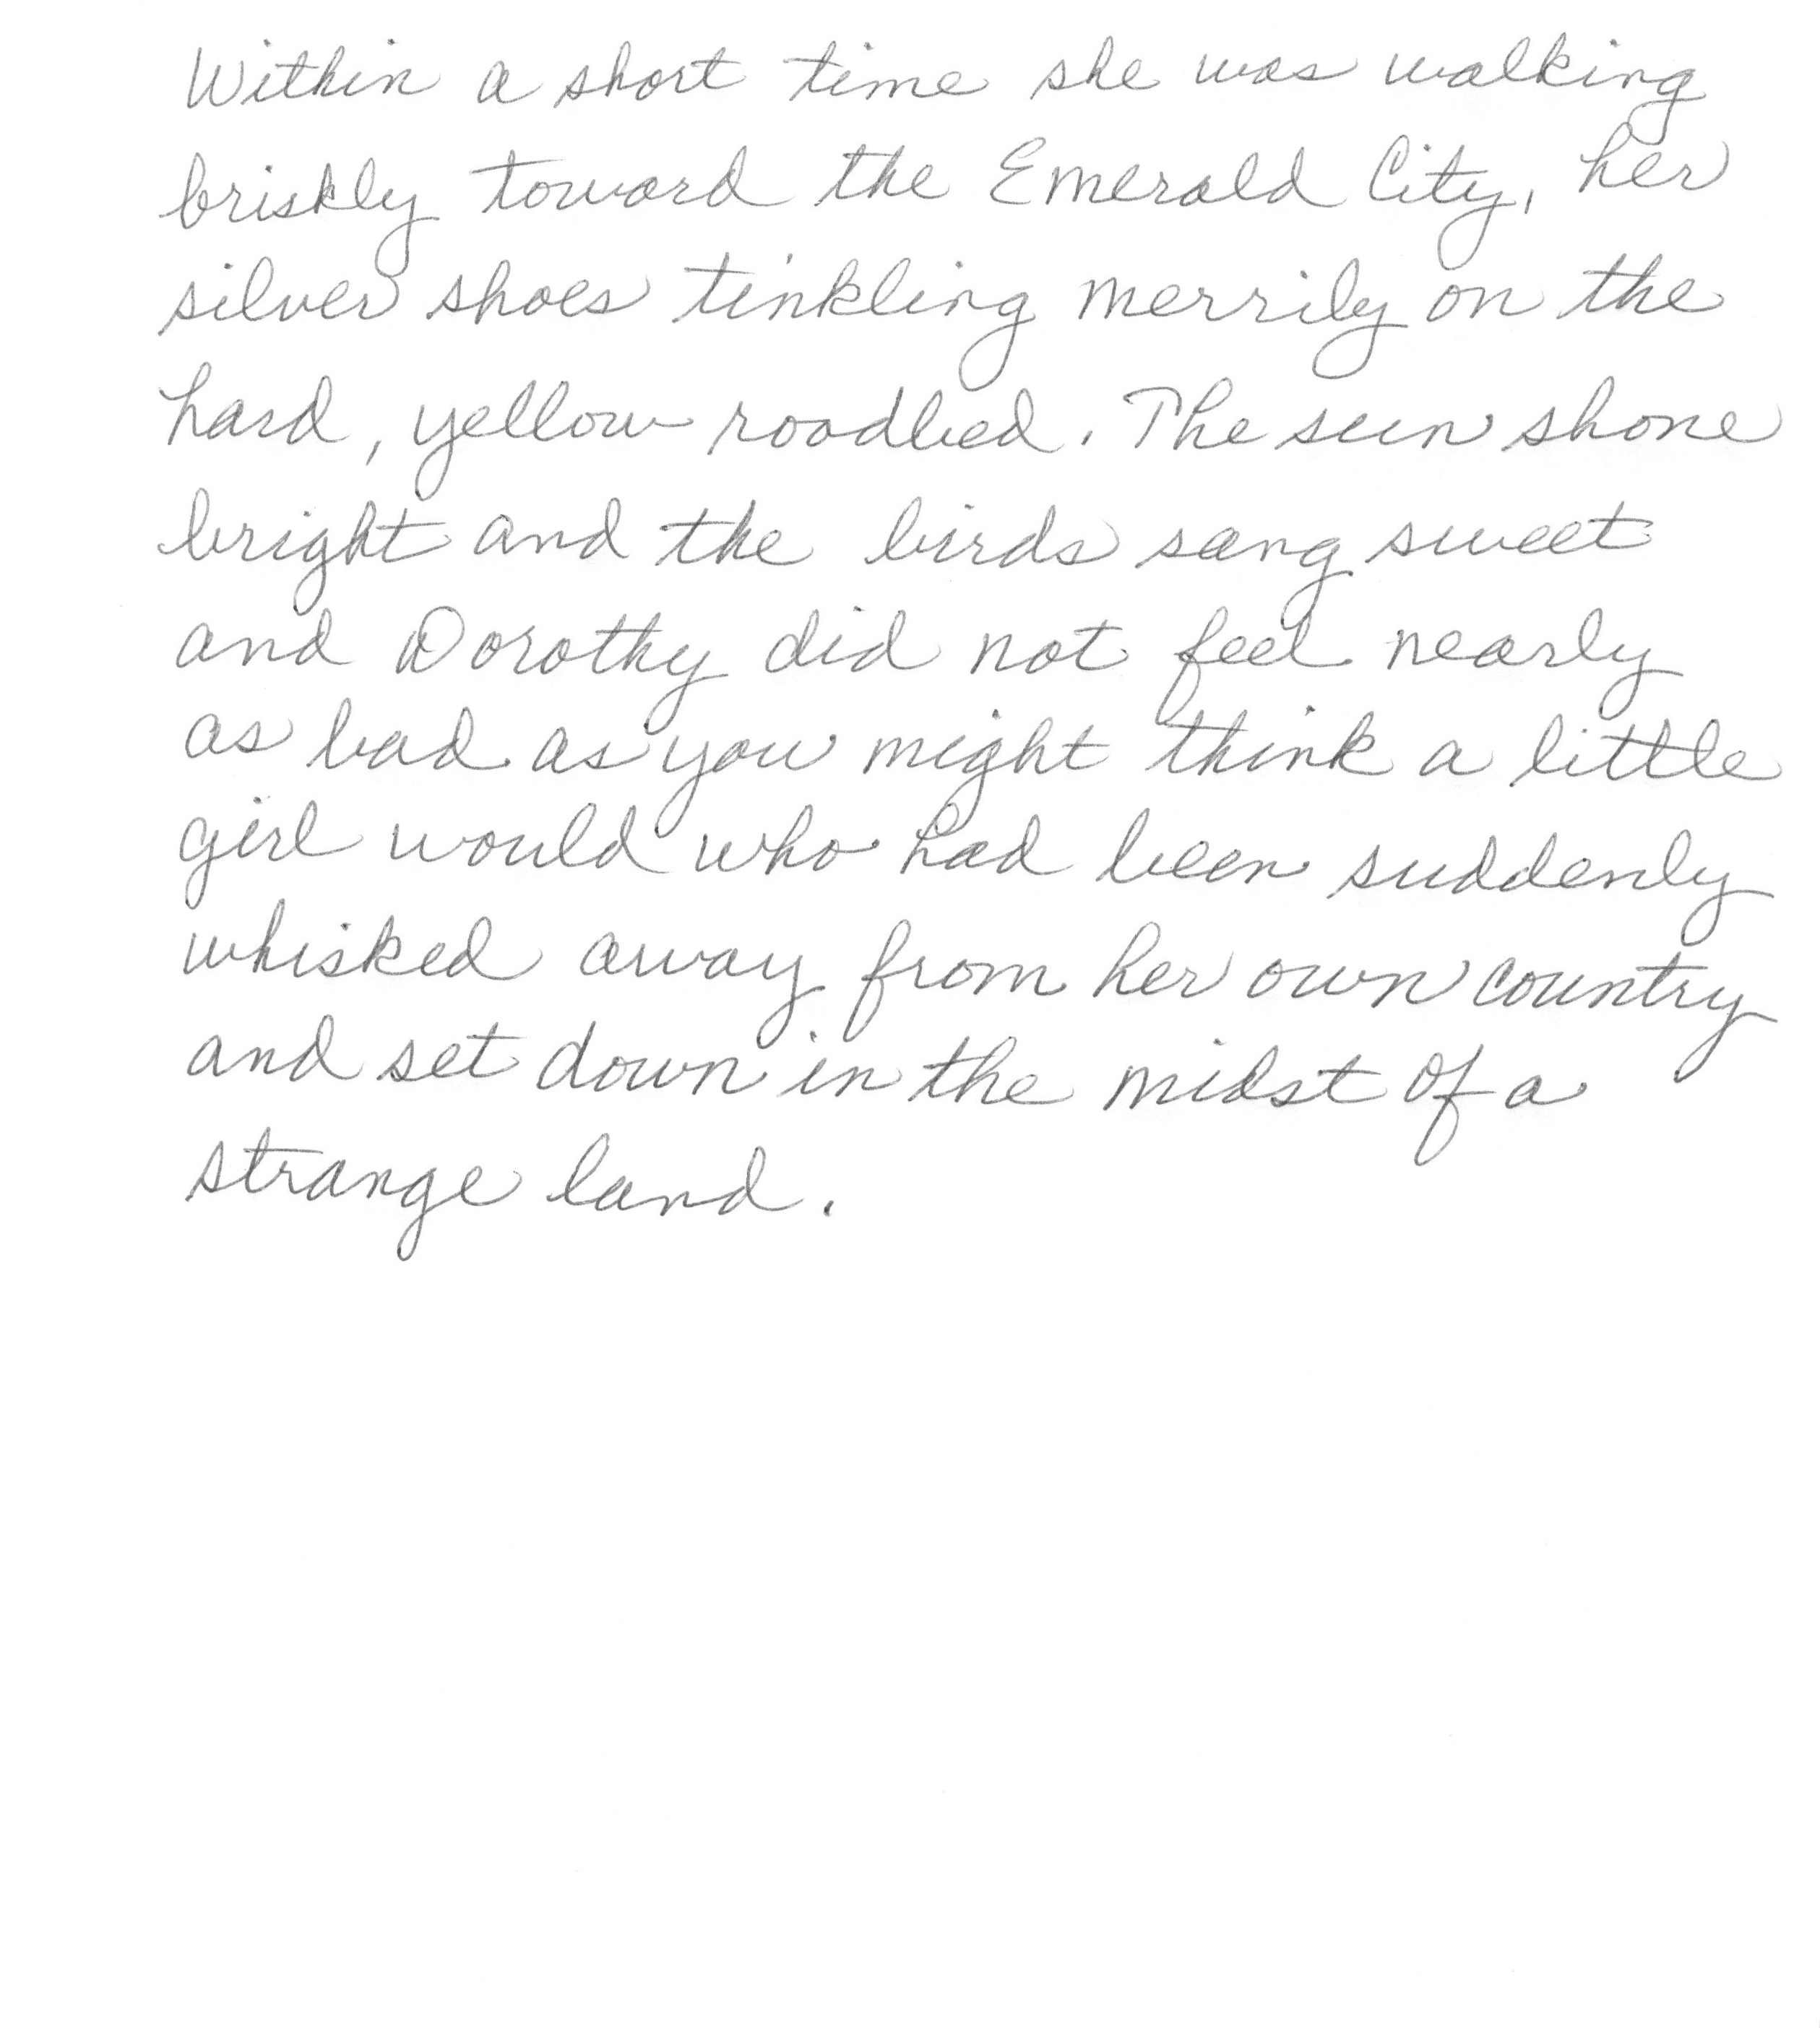 Within a short time she was walking
briskly toward the Emerald City, her
silver shoes tinkling merrily on the
hard, yellow roadbed. The sun shone
bright and the birds sang sweet
and Dorothy did not feel nearly
as bad as you might think a little
girl would who had been suddenly
whisked away from her own country
and set down in the midst of a
strange land.